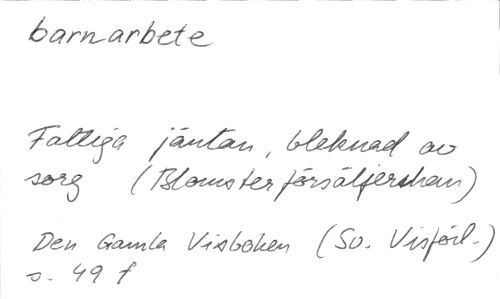 barnarbete
Fattiga jäntan, bleknad av
sorg (Blomsterförsäljerskan)
Den Gamla Visboken (Sv. Visförl.)
s. 49 f